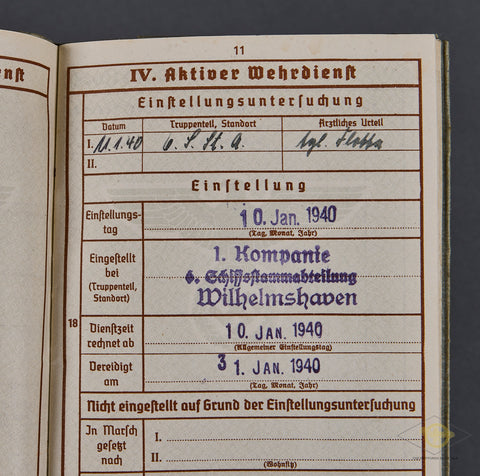 11
IV. Aktiver Wehrdienst
Einstellungsuntersuchung
Datum Truppenteil, Standort Ärztliches Urteil
I. 11.1.40 6. S. St. A. tgl. Flotte
II.
Einstellung
Einstellungs-
tag
10. Jan. 1940
(Tag, Monat, Jahr)
Eingestellt
bei
(Truppenteil,
Standort)
1. Kompanie
6. Schiffsstammabteilung
Wilhelmshaven
18
Dienstzeit
rechnet ab
10. JAN. 1940
(Allgemeiner Einstellungstag)
Vereidigt
am
31. JAN. 1940
(Tag, Monat, Jahr)
Nicht eingestellt auf Grund der Einstellungsuntersuchung
In Marsch
gesetzt
nach
I.
II.
(Wohnsitz)